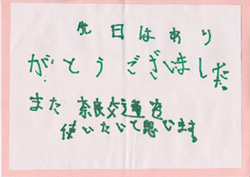 先日はあり
がとうございました。
また奈良交通を
使いたいて思います。